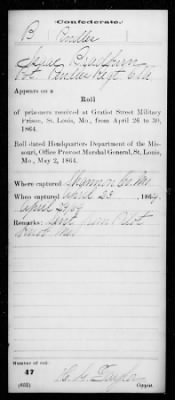 Confederate.
B
Isaac Bradburn
Appears on a
Roll
of prisoners received at Gratiot Street Military
Prison, St. Louis, Mo., from April 26 to 30,
1864.
Roll dated Headquarters Department of the Mis-
souri, Office Provost Marshal General, St. Louis,
Mo., May 2, 1864.
Where captured Shannon Co. Mo
When captured April 23, 1864.
April 29/64
Remarks: Sent from Pilot
Knob Mo
Number of roll:
47
(693)
H. G. Taylor
Copyist.